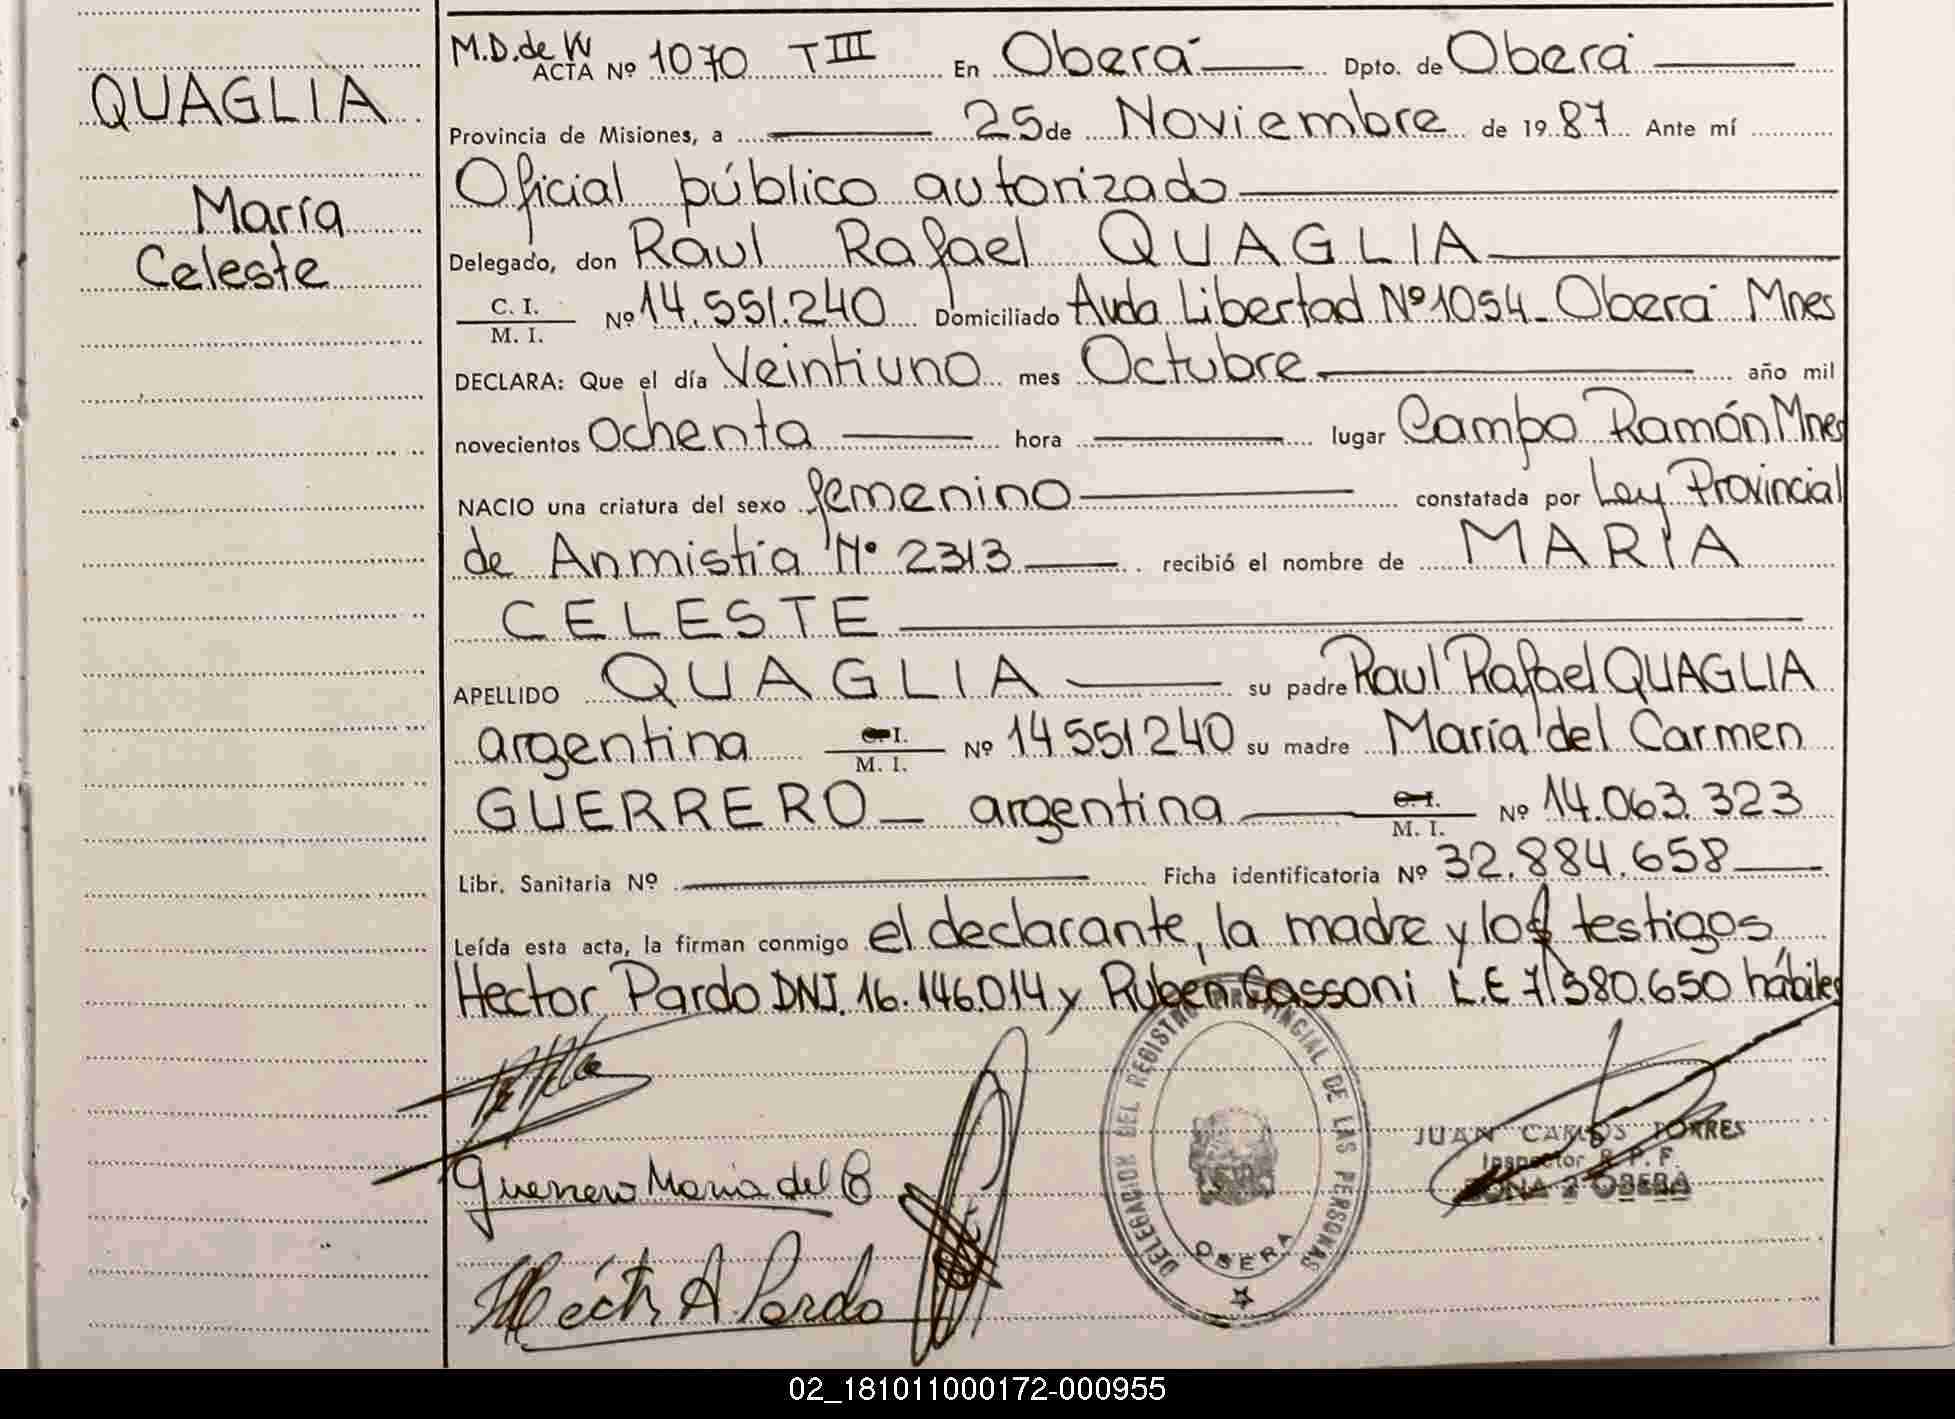 QUAGLIA
María
Celeste
M.D. de W
ACTA Nº 1070 T III En Oberá Dpto. de Oberá
Provincia de Misiones, a 25 de Noviembre de 1987 Ante mí
Oficial público autorizado
Delegado, don Raul Rafael QUAGLIA
C. I.
M. I. Nº 14.551.240 Domiciliado Avda Libertad Nº 1054 - Oberá Mnes
DECLARA: Que el día Veintiuno mes Octubre año mil
novecientos Ochenta hora lugar Campo Ramón Mnes
NACIO una criatura del sexo femenino constatada por Ley Provincial
de Anmistia Nº 2313 recibió el nombre de MARIA
CELESTE
APELLIDO QUAGLIA su padre Raul Rafael QUAGLIA
argentina C. I. M. I. Nº 14.551.240 su madre María del Carmen
GUERRERO - argentina C. I. M. I. Nº 14.063.323
Libr. Sanitaria Nº Ficha identificatoria Nº 32.884.658
Leída esta acta, la firman conmigo el declarante, la madre y los testigos
Hector Pardo DNI. 16.146.014 y Ruben Cassoni L.E 7.580.650 hábiles
Guerrero María del C
Héctor A. Pardo
DELEGACION DEL REGISTRO PROVINCIAL DE LAS PERSONAS
OBERA
JUAN CARLOS TORRES
Inspector R. P. F.
ZONA 2 OBERA
02_181011000172-000955